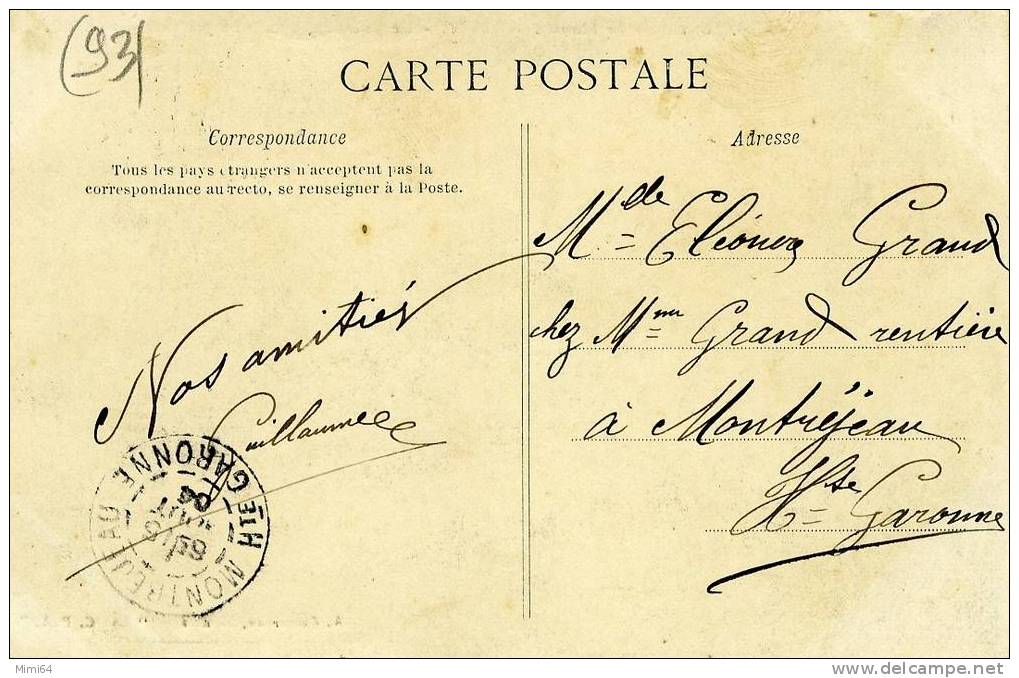 (93)
CARTE POSTALE
Correspondance
Tous les pays étrangers n'acceptent pas la
correspondance au recto, se renseigner à la Poste.
Nos amitiés
Guillaume
Adresse
Mde Eléonore Grand
chez Mme Grand rentière
à Montréjeau
Hte Garonne
MONTREJEAU HTE GARONNE
AOUT
04
Mimi64
delcampe.net